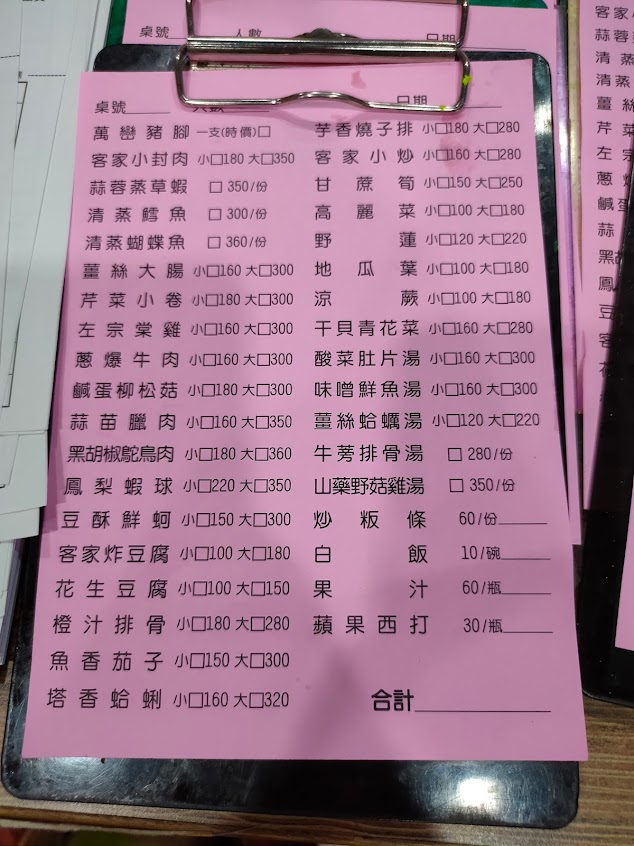 桌號 人數 日期
桌號 人數 日期
萬巒豬腳 一支(時價)□
客家小封肉 小□180 大□350
蒜蓉蒸草蝦 □ 350/份
清蒸鱈魚 □ 300/份
清蒸蝴蝶魚 □ 360/份
薑絲大腸 小□160 大□300
芹菜小卷 小□180 大□300
左宗棠雞 小□160 大□300
蔥爆牛肉 小□160 大□300
鹹蛋柳松菇 小□180 大□300
蒜苗臘肉 小□160 大□350
黑胡椒鴕鳥肉 小□180 大□360
鳳梨蝦球 小□220 大□350
豆酥鮮蚵 小□150 大□300
客家炸豆腐 小□100 大□180
花生豆腐 小□100 大□150
橙汁排骨 小□180 大□280
魚香茄子 小□150 大□300
塔香蛤蜊 小□160 大□320
芋香燒子排 小□180 大□280
客家小炒 小□160 大□280
甘蔗筍 小□150 大□250
高麗菜 小□100 大□180
野蓮 小□120 大□220
地瓜葉 小□100 大□180
涼蕨 小□100 大□180
干貝青花菜 小□160 大□280
酸菜肚片湯 小□160 大□300
味噌鮮魚湯 小□160 大□300
薑絲蛤蠣湯 小□120 大□220
牛蒡排骨湯 □ 280/份
山藥野菇雞湯 □ 350/份
炒粄條 60/份
白飯 10/碗
果汁 60/瓶
蘋果西打 30/瓶
合計